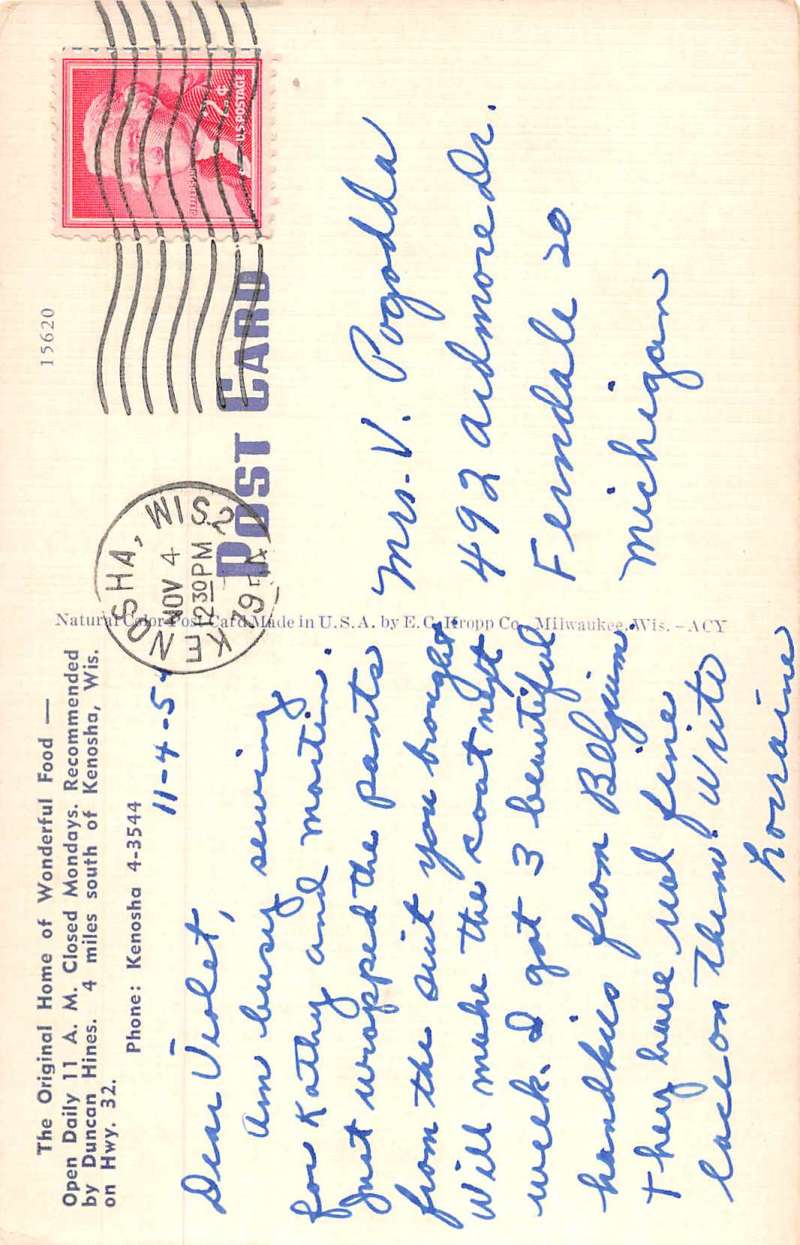 The Original Home of Wonderful Food —
Open Daily 11 A. M. Closed Mondays. Recommended
by Duncan Hines. 4 miles south of Kenosha, Wis.
on Hwy. 32.
Phone: Kenosha 4-3544
11-4-5
Dear Violet,
Am busy sewing
for Kathy and Martin.
Just wrapped the pants
from the suit you brought
Will make the coat next
week. I got 3 beautiful
handkies from Belgium.
They have real fine
lace on them. Write
Lorraine
Natural Color Post Card Made in U.S.A. by E. C. Kropp Co., Milwaukee, Wis. – ACY
15620
POST CARD
KENOSHA, WIS. 2
NOV 4
2 30 PM
JEFFERSON
2¢
U.S. POSTAGE
Mrs. V. Pogodda
492 Ardmore Dr.
Ferndale 20
Michigan